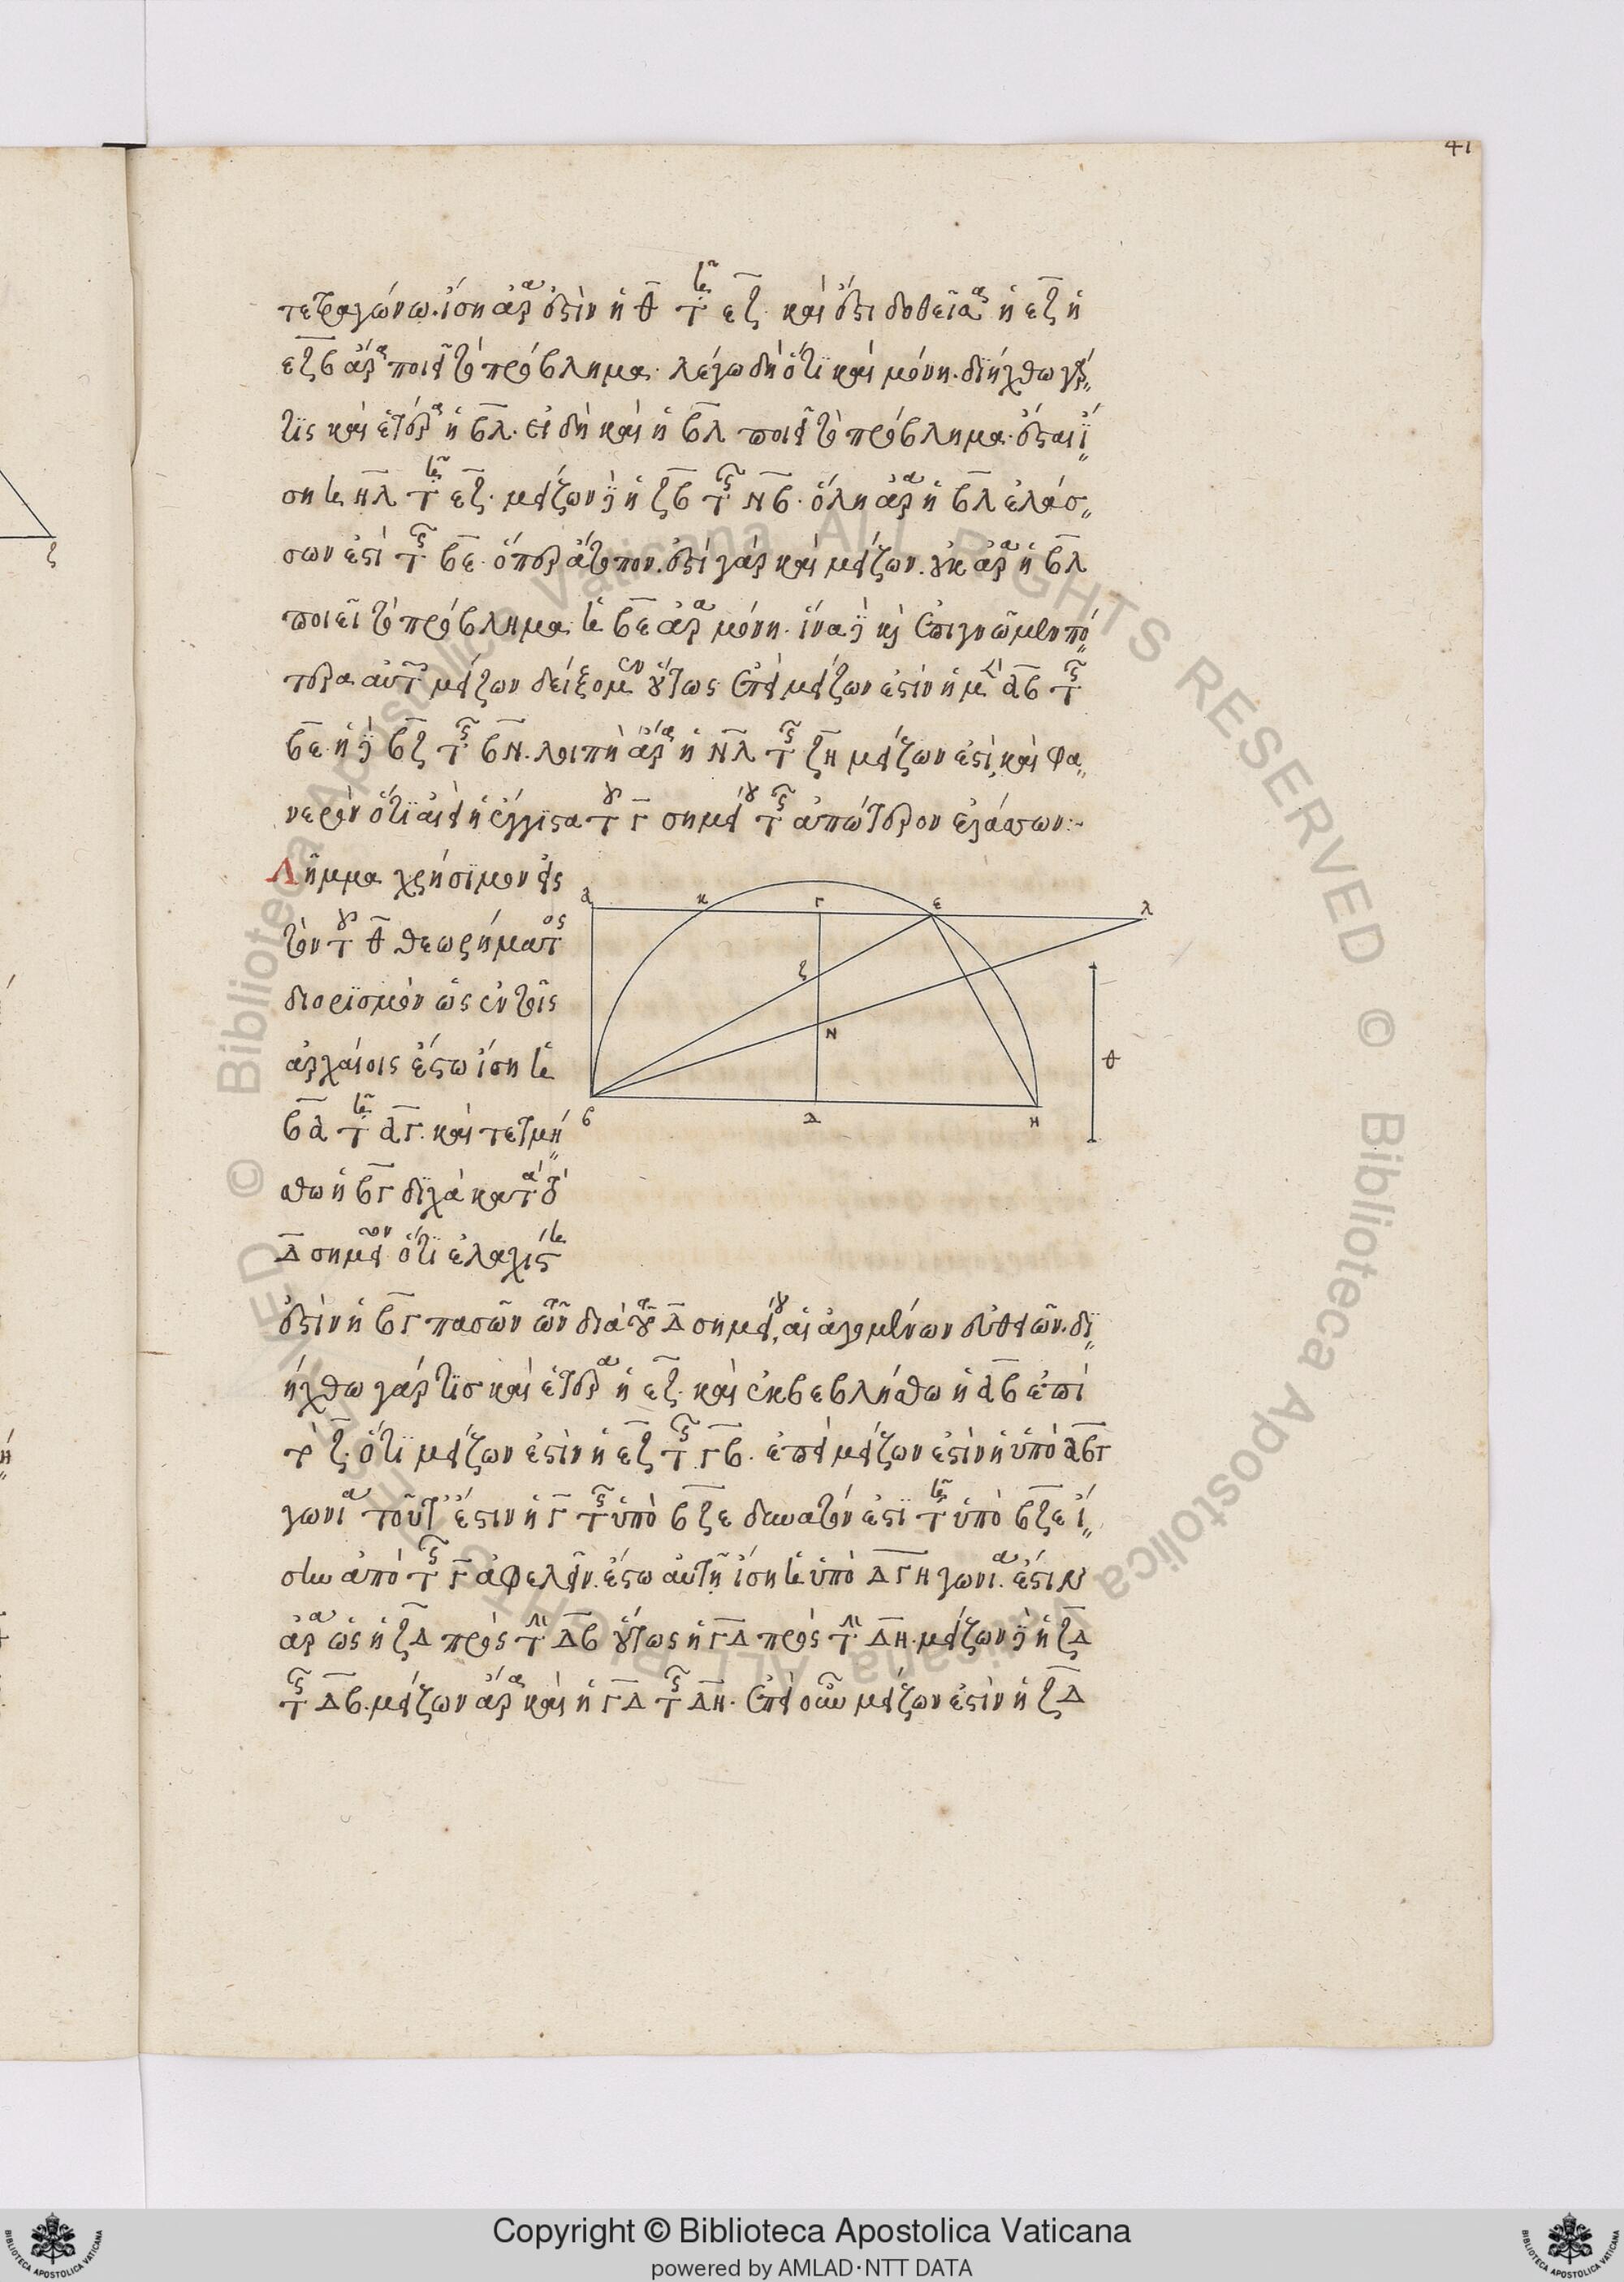 41
τετραγώνω. ἴση ἄρα ἐστὶν ἡ θ τῇ εζ. καί ἐστι δοθεῖσα ἡ εζ ἡ
εζβ ἄρα ποιεῖ τὸ πρόβλημα. λέγω δὴ ὅτι καὶ μόνη. διήχθω γάρ
τις καὶ ἑτέρα ἡ βλ. εἰ δὴ καὶ ἡ βλ ποιεῖ τὸ πρόβλημα. ἔσται ἴ
ση ἡ νλ τῇ εζ. μείζων δὲ ἡ ζβ τῆς νβ. ὅλη ἄρα ἡ βλ ἐλάσ
σων ἐστὶ τῆς βε. ὅπερ ἄτοπον. ἔστι γάρ καὶ μείζων. οὐκ ἄρα ἡ βλ
ποιεῖ τὸ πρόβλημα. ἡ βε ἄρα μόνη. ἵνα δὲ καὶ ἐπιγνῶμεν πό
τερα αὐτῶν μείζων δείξομεν οὕτως ἐπεὶ μείζων ἐστὶν ἡ μὲν αβ τῆς
βε. ἡ δὲ βζ τῆς βν. λοιπὴ ἄρα ἡ νλ τῆς ζη μείζων ἐστὶ, καὶ φα
νερὸν ὅτι ἀεὶ ἡ ἔγγιστα τοῦ γ σημείου τῆς ἀπώτερον ἐλάσσων:~
Λῆμμα χρήσιμον εἰς
τὸν τοῦ θ θεωρήματος
διορισμὸν ὡς ἐν τοῖς
ἀρχαίοις ἔστω ἴση ἡ
βα τῇ αγ. καὶ τετμή
σθω ἡ βγ δίχα κατὰ τὸ
δ σημεῖον ὅτι ἐλαχίστη
ἐστὶν ἡ βγ πασῶν τῶν διὰ τοῦ δ σημείου, διαγομένων εὐθειῶν. δι
ήχθω γάρ τισ καὶ ἑτέρα ἡ εζ. καὶ ἐκβεβλήσθω ἡ αβ ἐπὶ
τὸ ζ. ὅτι μείζων ἐστὶν ἡ εζ τῆς γβ. ἐπεὶ μείζων ἐστὶν ἡ ὑπὸ αβγ
γωνία τοῦτ ἔστιν ἡ γ τῆς ὑπὸ βζε δυνατόν ἐστι τῇ ὑπὸ βζε ἴ
σην ἀπὸ τῆς γ ἀφελεῖν. ἔστω αὐτῇ ἴση ἡ ὑπὸ δγη γωνία. ἔστιν
ἄρα ὡς ἡ ζδ πρὸς τὴν δβ οὕτως ἡ γδ πρὸς τὴν δη. μείζων δὲ ἡ ζδ
τῆς δβ. μείζων ἄρα καὶ ἡ γδ τῆς δη. ἐπεὶ οὖν μείζων ἐστὶν ἡ ζδ
α κ γ ε λ
ζ
ν
θ
β δ η
Copyright © Biblioteca Apostolica Vaticana
powered by AMLAD·NTT DATA